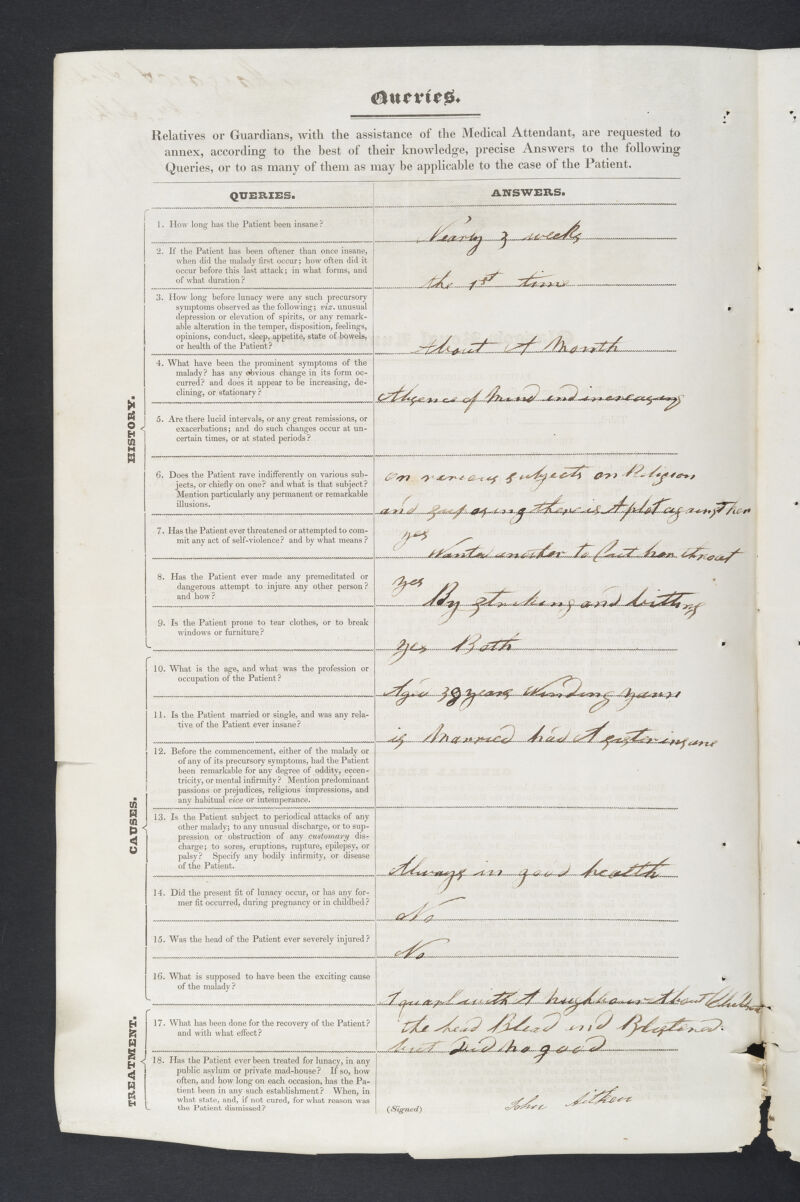 Queries.
Relatives or Guardians, with the assistance of the Medical Attendant, are requested to
annex, according to the best of their knowledge, precise Answers to the following
Queries, or to as many of them as may be applicable to the case of the Patient.
QUERIES.
ANSWERS.
HISTORY.
1. How long has the Patient been insane?
Nearly 3 weeks
2. If the Patient has been oftener than once insane,
when did the malady first occur; how often did it
occur before this last attack; in what forms, and
of what duration?
the 1st time
3. How long before lunacy were any such precursory
symptoms observed as the following; viz. unusual
depression or elevation of spirits, or any remark-
able alteration in the temper, disposition, feelings,
opinions, conduct, sleep, appetite, state of bowels,
or health of the Patient?
About A Month
4. What have been the prominent symptoms of the
malady? has any obvious change in its form oc-
curred? and does it appear to be increasing, de-
clining, or stationary?
Absence of Mind and increasing
5. Are there lucid intervals, or any great remissions, or
exacerbations; and do such changes occur at un-
certain times, or at stated periods?
6. Does the Patient rave indifferently on various sub-
jects, or chiefly on one? and what is that subject?
Mention particularly any permanent or remarkable
illusions.
on various subjects on Religion
and suposing there is A plot against her
7. Has the Patient ever threatened or attempted to com-
mit any act of self-violence? and by what means?
yes
Wanted another to Cut her throat
8. Has the Patient ever made any premeditated or
dangerous attempt to injure any other person?
and how?
yes
By striking and bitting
9. Is the Patient prone to tear clothes, or to break
windows or furniture?
yes Both
CAUSES.
10. What is the age, and what was the profession or
occupation of the Patient?
Aged 38 years Winding yarn
11. Is the Patient married or single, and was any rela-
tive of the Patient ever insane?
is Married had A sister insane
12. Before the commencement, either of the malady or
of any of its precursory symptoms, had the Patient
been remarkable for any degree of oddity, eccen-
tricity, or mental infirmity? Mention predominant
passions or prejudices, religious impressions, and
any habitual vice or intemperance.
13. Is the Patient subject to periodical attacks of any
other malady; to any unusual discharge, or to sup-
pression or obstruction of any customary dis-
charge; to sores, eruptions, rupture, epilepsy, or
palsy? Specify any bodily infirmity, or disease
of the Patient.
Always in good health
14. Did the present fit of lunacy occur, or has any for-
mer fit occurred, during pregnancy or in childbed?
No
15. Was the head of the Patient ever severely injured?
No
16. What is supposed to have been the exciting cause
of the malady?
A quarl with A nighbour About Children
TREATMENT.
17. What has been done for the recovery of the Patient?
and with what effect?
the head Bleed and Blistered
but Did no good
18. Has the Patient ever been treated for lunacy, in any
public asylum or private mad-house? If so, how
often, and how long on each occasion, has the Pa-
tient been in any such establishment? When, in
what state, and, if not cured, for what reason was
the Patient dismissed?
(Signed) John Aitken